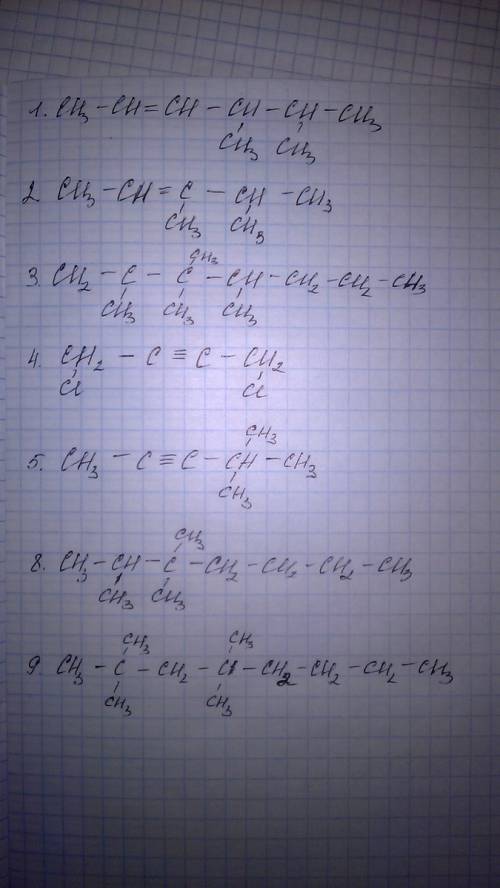 1. CH3 - CH = CH - CH - CH - CH3
CH3 CH3
2 CH3 - CH = C - CH - CH3
CH3 CH3
CH3
3. CH2 - C - C - CH - CH2 - CH2 - CH3
CH3 CH3 CH3
4. CH2 - C ≡ C - CH2
Cl Cl
CH3
5. CH3 - C ≡ C - CH - CH3
CH3
CH3
8. CH3 - CH - C - CH2 - CH2 - CH2 - CH3
CH3 CH3
CH3 CH3
9. CH3 - C - CH2 - C - CH2 - CH2 - CH2 - CH3
CH3 CH3